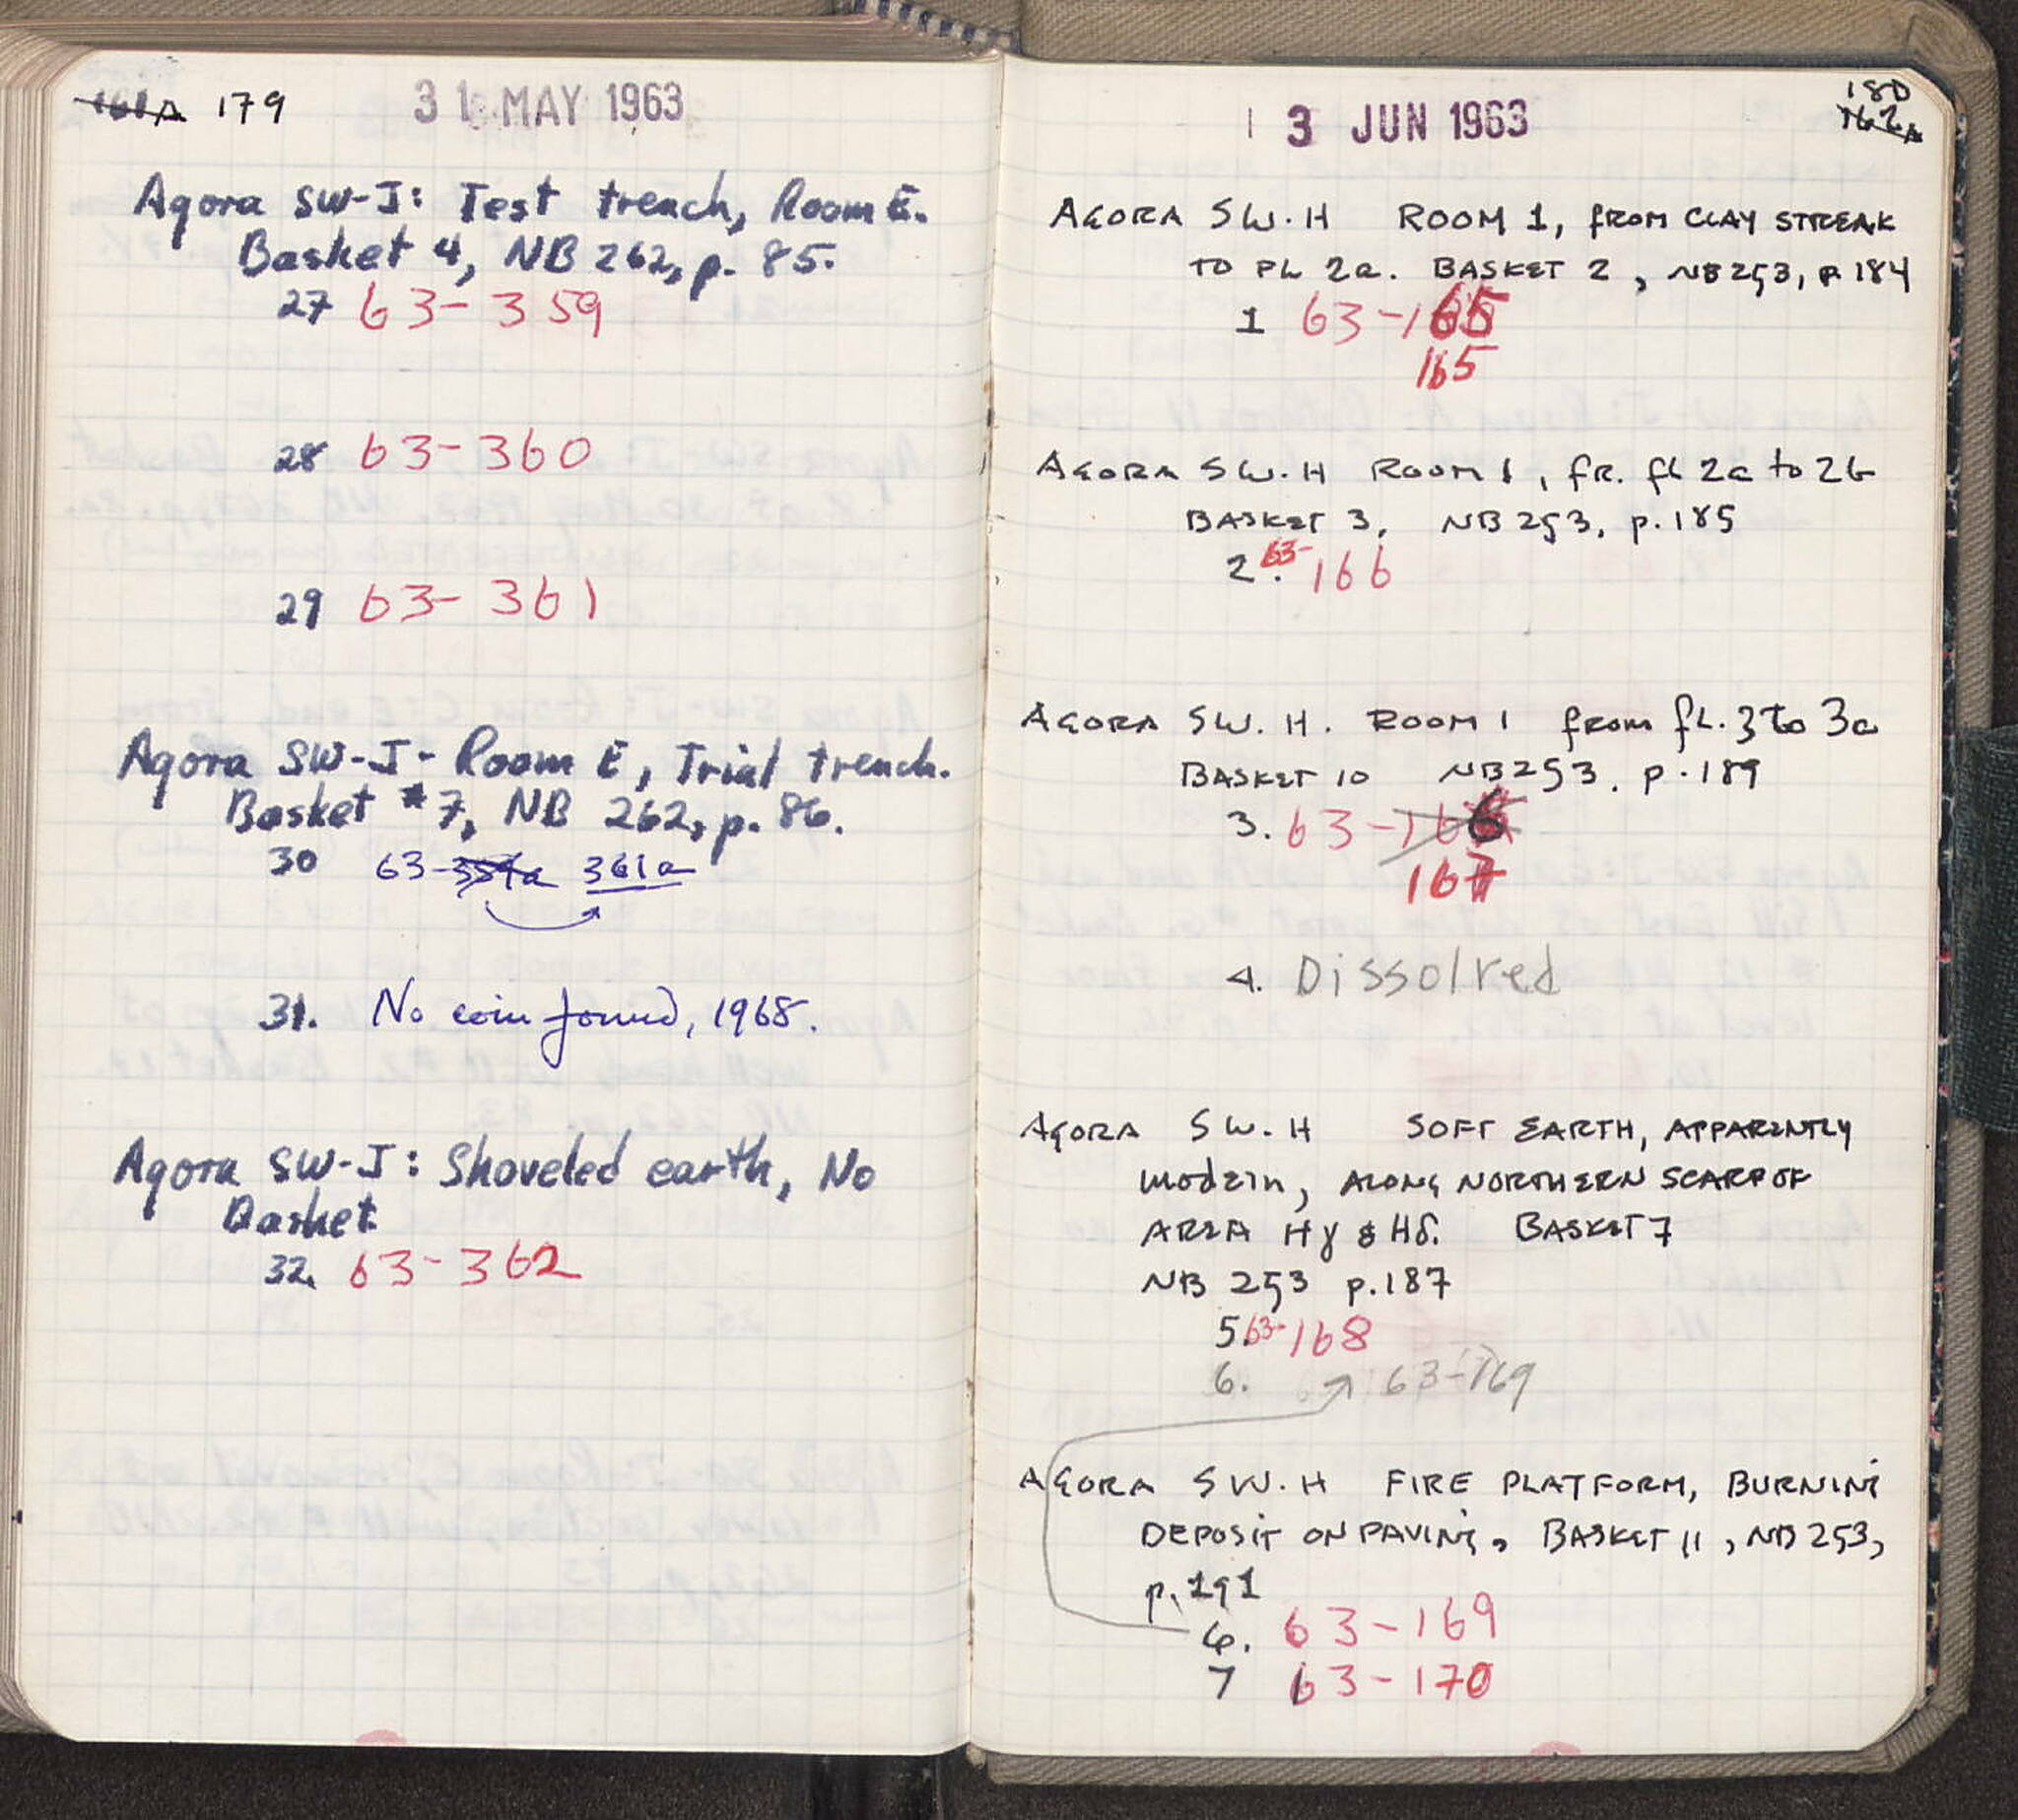 161A 179
31 MAY 1963
Agora SW-J: Test trench, Room E.
Basket 4, NB 262, p. 85.
27 63-359
28 63-360
29 63-361
Agora SW-J- Room E, Trial trench.
Basket #7, NB 262, p. 86.
30 63-359a 361a
31. No coin found, 1968.
Agora SW-J: Shoveled earth, No
Basket
32. 63-362
3 JUN 1963
180
162A
AGORA SW.H ROOM 1, from CLAY STREAK
TO FL 2a. BASKET 2, NB 253, p 184
1 63-165
165
AGORA SW.H ROOM 1, fR. fl 2a to 2b
BASKET 3, NB 253, p. 185
2. 63-166
AGORA SW. H. ROOM 1 from fL. 3 to 3a
BASKET 10 NB 253. p. 189
3. 63-166
167
4. Dissolved
AGORA SW.H SOFT EARTH, APPARENTLY
modern, ALONG NORTHERN SCARP OF
AREA Hγ & Hδ. BASKET 7
NB 253 p.187
5. 63-168
6. 63-169
AGORA SW.H FIRE PLATFORM, BURNING
DEPOSIT ON PAVING, BASKET 11, NB 253,
p. 191
6. 63-169
7 63-170